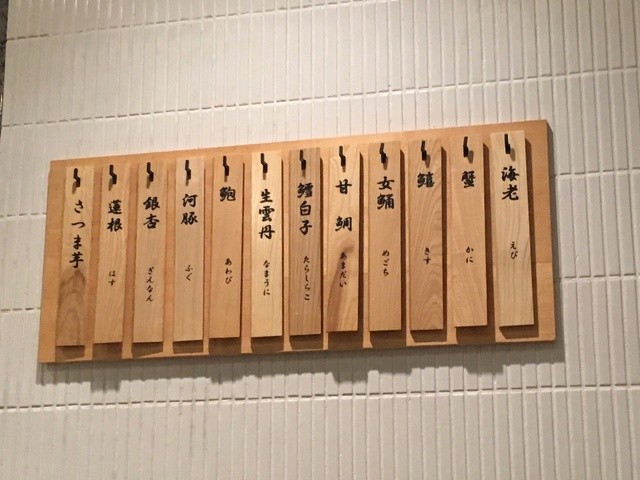 海老 えび
蟹 かに
鱚 きす
女鯒 めごち
甘鯛 あまだい
鱈白子 たらしらこ
生雲丹 なまうに
鮑 あわび
河豚 ふぐ
銀杏 ぎんなん
蓮根 はす
さつま芋